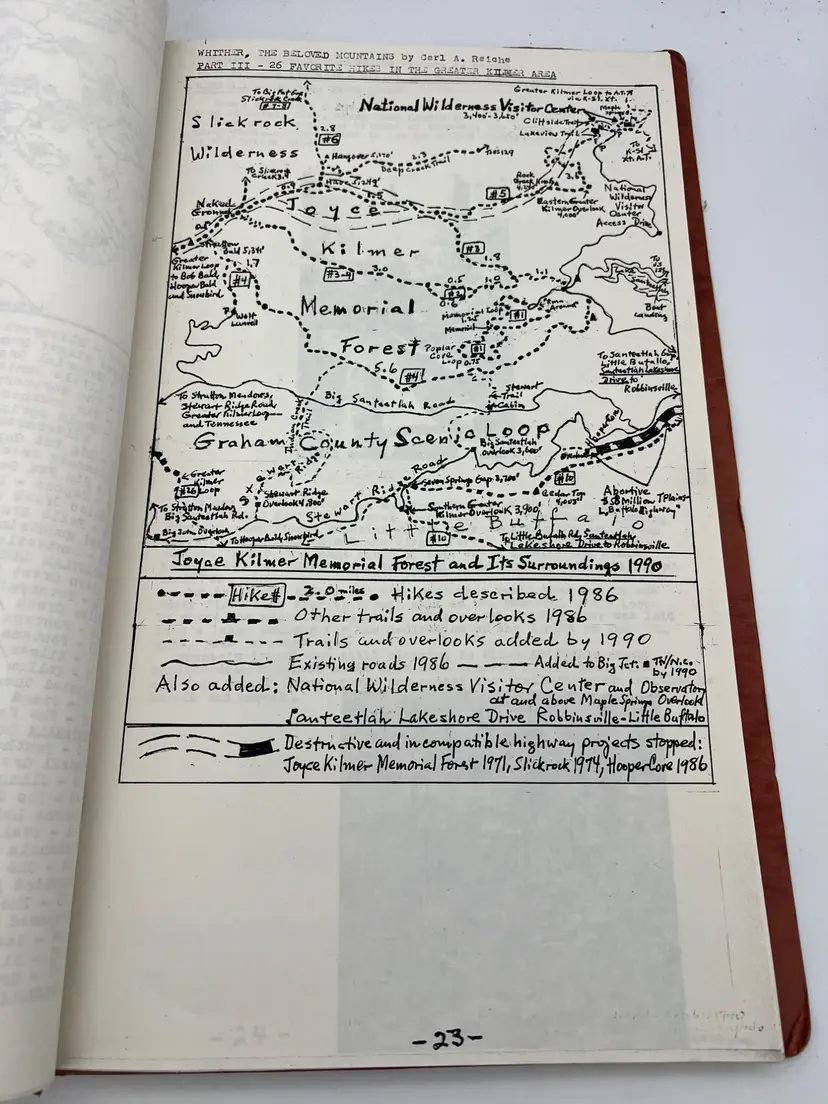 WHITHER, THE BELOVED MOUNTAINS by Carl A. Reiche
PART III - 26 FAVORITE HIKES IN THE GREATER KILMER AREA
Greater Kilmer Loop to A.T.
National Wilderness Visitor Center
3,400'-3,650'
Cliffside Trail
Lakeview Trail
Slickrock
Wilderness
2.8
#6
Hangover 5,170'
2.3
Deep Creek Trail
To Slickrock
Creek 3.4
Haoe 5,249'
0.9
1.5
Naked
Ground
Joyce
#5
Rock
Creek Knob
3.1
Eastern Greater
Kilmer Overlook
4,000'
National
Wilderness
Visitor
Center
Access Drive
Stratton
Bald 5,341'
Greater
Kilmer Loop
to Bob Bald,
Hooper Bald
and Snowbird
1.7
#4
Kilmer
#3
1.8
#3-4
3.0
0.5
1.0
1.1
#2
0.6
Memorial
Memorial Loop
1.25
Memorial
#1
Boat
Landing
Wolf
Laurel
Forest
Poplar
Cove
Loop 0.75
#1
5.6
#4
To Santeetlah Gap
Little Buffalo,
Santeetlah Lakeshore
Drive to
Robbinsville
To Stratton Meadows,
Stewart Ridge Road,
Greater Kilmer Loop
and Tennessee
Big Santeetlah Road
Stewart
Trail
Cabin
Graham County Scenic Loop
Big Santeetlah
Overlook 3,600'
Greater
Kilmer
#26 Loop
Stewart Ridge
Overlook 4,800'
Stewart Ridge Road
Seven Springs Gap 3,700'
#10
Cedar Top
4,003'
Abortive
To Stratton Meadows
Big Santeetlah Rd.
Southern Greater
Kilmer Overlook 3,900'
#10
Little Buffalo
Big Jct. Overlook
To Hooper Bald, Snowbird
To Little Buffalo Rd, Santeetlah
Lakeshore Drive to Robbinsville
Joyce Kilmer Memorial Forest and Its Surroundings 1990
Hike# 3.0 miles Hikes described 1986
Other trails and overlooks 1986
Trails and overlooks added by 1990
Existing roads 1986 Added to Big Jct. TN/N.C. by 1990
Also added: National Wilderness Visitor Center and Observatory
at and above Maple Springs Overlook
Santeetlah Lakeshore Drive Robbinsville-Little Buffalo
Destructive and incompatible highway projects stopped:
Joyce Kilmer Memorial Forest 1971, Slickrock 1974, Hooper Cove 1986
-23-